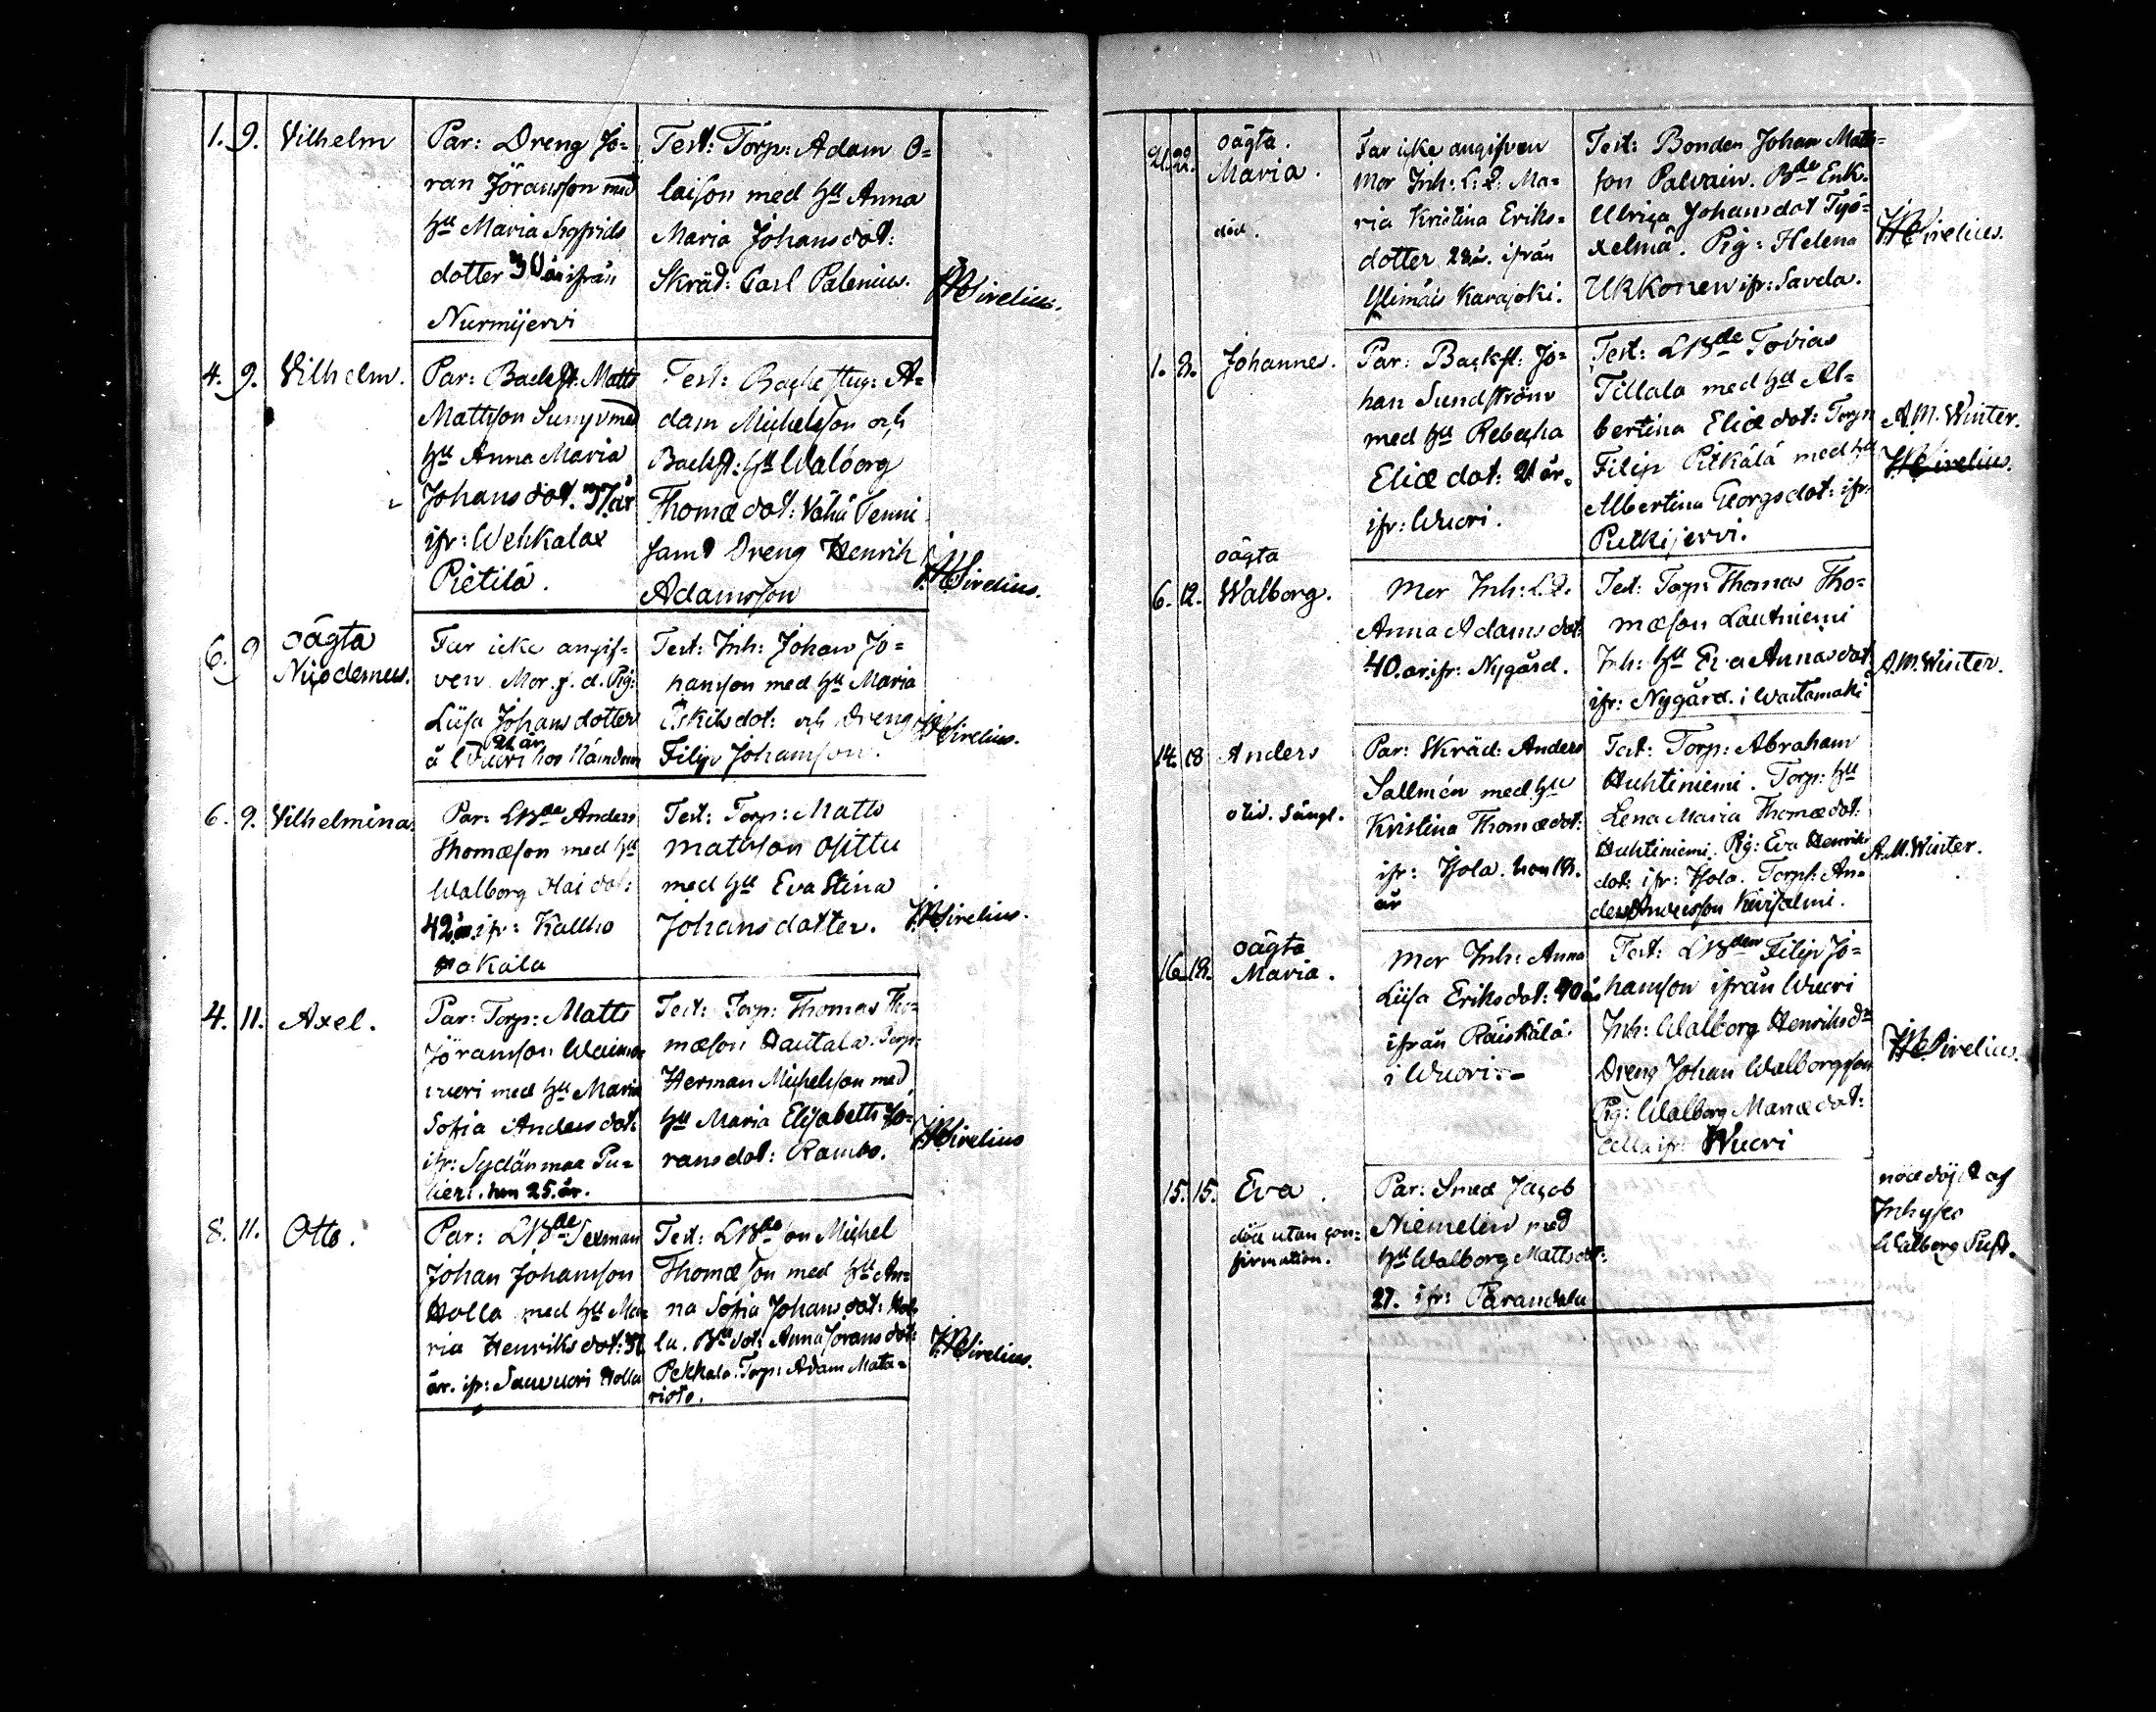 1. 9. Vilhelm
Par: Dreng Jö=
ran Jöransson med
hu Maria Sigfrids
dotter 30 år ifrån
Nurmijervi
Test: Torp: Adam O=
laison med hu Anna
Maria Johansdot:
Skräd: Carl Palenius.
Sirelius.
4. 9. Vilhelm.
Par: Backst: Matts
Mattsson med
hu Anna Maria
Johansdot. 37 år
ifr: Wehkalax
Pietilä.
Test: Backstug: A=
dam Michelsson och
Backst: hu Walborg
Thomædot: Vähä Penni
samt Dreng Henrik
Adamsson
Sirelius.
6. 9 oägta
Nicodemus.
Far icke angif=
ven Mor f. d. Pig:
Liisa Johansdotter
21 år
å Wuori hos
Test: Inh: Johan Jo=
hansson med hu Maria
Eskilsdot: och Dreng
Filip Johansson.
Sirelius.
6. 9. Vilhelmina.
Par: LBde Anders
Thomæson med hu
Walborg Olaidot:
42 år ifr: Kallio
Test: Torp: Matts
Mattsson
med hu Eva Stina
Johansdotter.
Sirelius.
4. 11. Axel.
Par: Torp: Matts
Jöransson
wuori med hu Maria
Sofia Andersdot:
ifr: Sydänmaa
hon 25. år.
Test: Torp: Thomas Tho=
mæson Hautala. Torp:
Herman Michelsson med
hu Maria Elisabeth Jö=
ransdot: Rambo.
Sirelius
8. 11. Otto.
Par: LBde Sexman
Johan Johansson
Holla med hu Ma=
ria Henriksdot:
år. ifr: Sauvuori Holla
Test: LBdeson Michel
Thomæson med hu An=
na Sofia Johansdot: Hol=
la. Bdedot: Anna Jöransdot:
Pekkala. Torp: Adam Mata=
risto.
Sirelius.
21. 22. oägta.
Maria.
död.
Far icke angifven
Mor Inh: L: Q: Ma=
ria Kristina Eriks=
dotter 28 år. ifrån
Ylimäis Karajoki.
Test: Bonden Johan Matts=
son Palvain. Bde Enk.
Ulrica Johansdot Työ=
xelmä. Pig: Helena
Ukkonen ifr: Savela.
Sirelius.
1. 3. Johannes.
Par: Backst: Jo=
han Sundström
med hu Rebecka
Eliædot: 21 år.
ifr: Wuori.
Test: LBde Tobias
Tillala med hu Al=
bertina Eliædot: Torp
Filip Pitkälä med hu
Albertina Georgsdot: ifr:
Putkijervi.
A.M. Winter.
Sirelius.
6. 12. oägta
Walborg.
Mor Inh: L.Q.
Anna Adamsdot:
40. år ifr: Nygård.
Test: Torp: Thomas Tho=
mæson Lautniemi
Inh: hu Eva Annasdot
ifr: Nygård. i Waitamäki
A.M. Winter.
14. 18 Anders
Par: Skräd: Anders
Sallmén med hu
Kristina Thomædot:
ifr: Isola. hon 18.
år
Test: Torp: Abraham
Huhtiniemi. Torp: hu
Lena Maria Thomædot:
Huhtiniemi. Pig: Eva Henriks
dot: ifr: Isola. Torpf: An=
ders Andersson Kivisalmi.
A.M. Winter.
16. 18. oägta
Maria.
Mor Inh: Anna
Liisa Eriksdot: 40 år
ifrån Räiskälä
i Wuori. -
Test: LBden Filip Jo=
hansson ifrån Wuori
Inh: Walborg Henriksdr
Dreng Johan Walborgsson
Pig: Walborg Mariædot:
alla ifr: Wuori
Sirelius.
15. 15. Eva.
död utan con=
firmation.
Par: Smed Jacob
Niemelin med
hu Walborg Mattsdot:
27. ifr: Parandala
nöddöpt af
Inhyses
Walborg